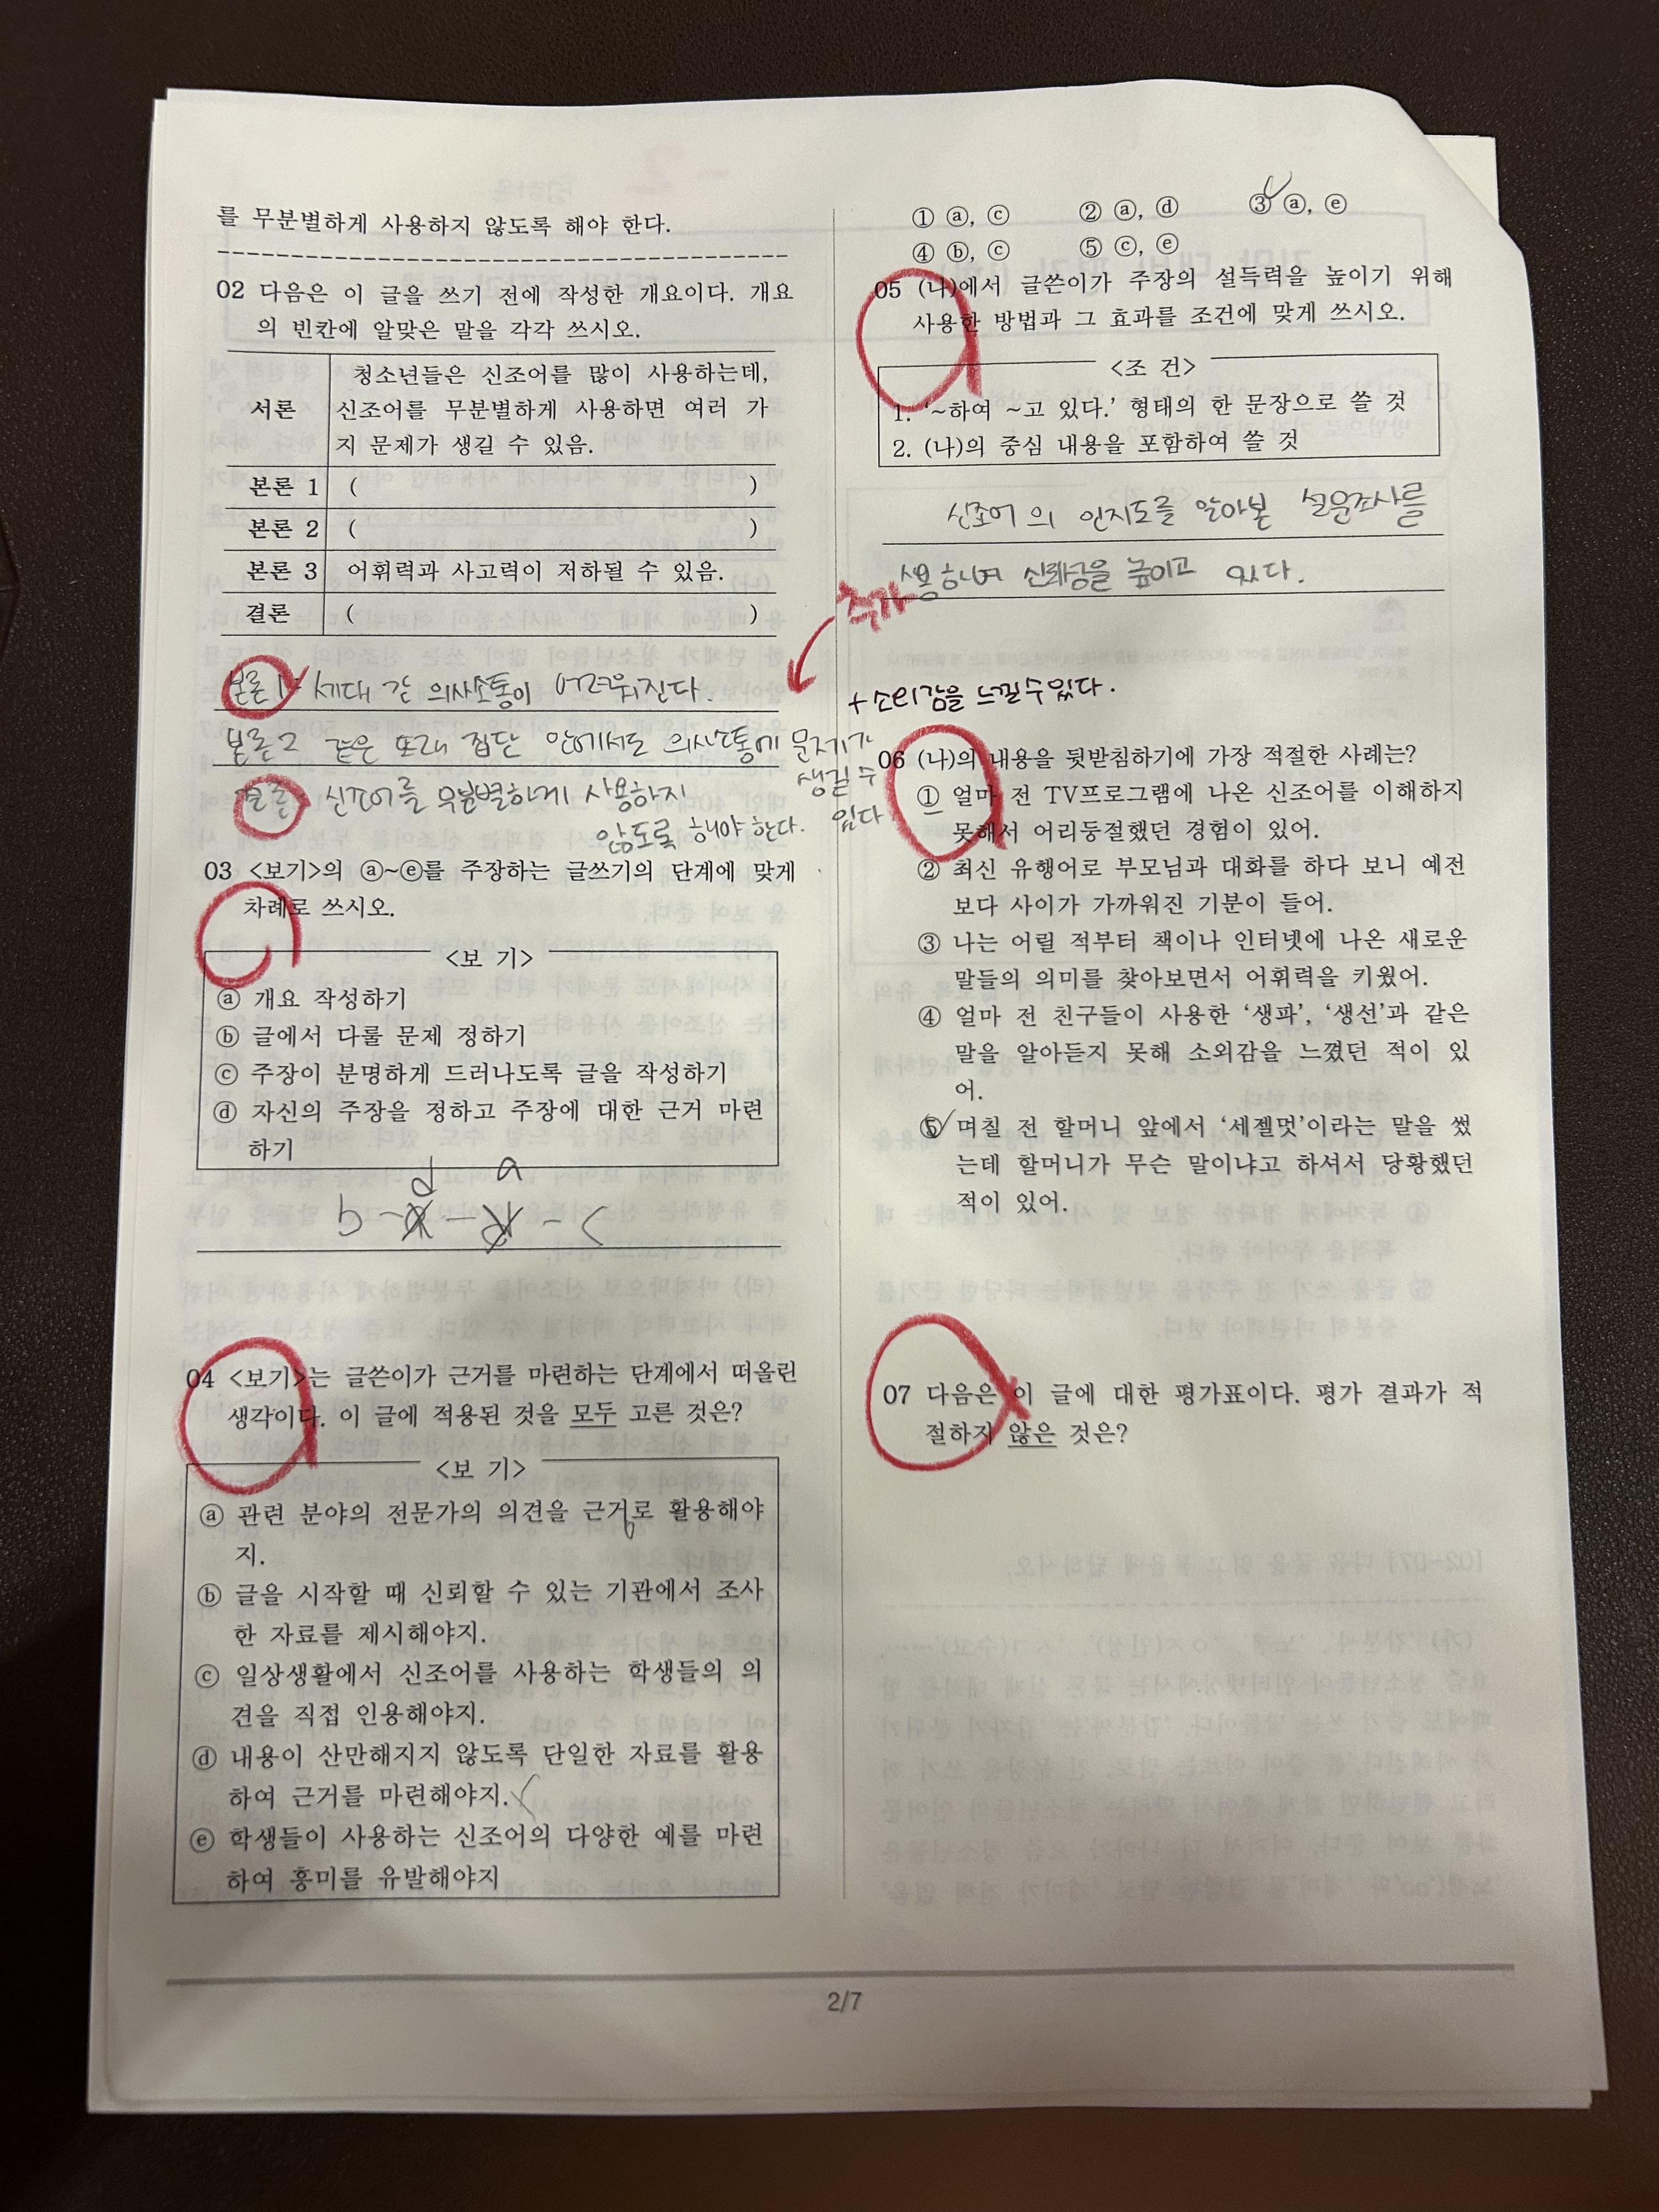 를 무분별하게 사용하지 않도록 해야 한다.
02 다음은 이 글을 쓰기 전에 작성한 개요이다. 개요
의 빈칸에 알맞은 말을 각각 쓰시오.
서론
청소년들은 신조어를 많이 사용하는데,
신조어를 무분별하게 사용하면 여러 가
지 문제가 생길 수 있음.
본론 1 ( )
본론 2 ( )
본론 3 어휘력과 사고력이 저하될 수 있음.
결론 ( )
본론 1: 세대 간 의사소통이 어려워진다.
본론2 같은 또래 집단 안에서도 의사소통에 문제가
생길 수
있다
결론: 신조어를 무분별하게 사용하지
않도록 해야 한다.
03 <보기>의 ⓐ~ⓔ를 주장하는 글쓰기의 단계에 맞게
차례로 쓰시오.
<보 기>
ⓐ 개요 작성하기
ⓑ 글에서 다룰 문제 정하기
ⓒ 주장이 분명하게 드러나도록 글을 작성하기
ⓓ 자신의 주장을 정하고 주장에 대한 근거 마련
하기
04 <보기>는 글쓴이가 근거를 마련하는 단계에서 떠올린
생각이다. 이 글에 적용된 것을 모두 고른 것은?
<보 기>
ⓐ 관련 분야의 전문가의 의견을 근거로 활용해야
지.
ⓑ 글을 시작할 때 신뢰할 수 있는 기관에서 조사
한 자료를 제시해야지.
ⓒ 일상생활에서 신조어를 사용하는 학생들의 의
견을 직접 인용해야지.
ⓓ 내용이 산만해지지 않도록 단일한 자료를 활용
하여 근거를 마련해야지.
ⓔ 학생들이 사용하는 신조어의 다양한 예를 마련
하여 흥미를 유발해야지
① ⓐ, ⓒ ② ⓐ, ⓓ ③ ⓐ, ⓔ
④ ⓑ, ⓒ ⑤ ⓒ, ⓔ
05 (나)에서 글쓴이가 주장의 설득력을 높이기 위해
사용한 방법과 그 효과를 조건에 맞게 쓰시오.
<조 건>
1. ‘~하여 ~고 있다.’ 형태의 한 문장으로 쓸 것
2. (나)의 중심 내용을 포함하여 쓸 것
신조어의 인지도를 알아본 설문조사를
사용하여 신뢰성을 높이고 있다.
추가
+소외감을 느낄 수 있다.
06 (나)의 내용을 뒷받침하기에 가장 적절한 사례는?
① 얼마 전 TV프로그램에 나온 신조어를 이해하지
못해서 어리둥절했던 경험이 있어.
② 최신 유행어로 부모님과 대화를 하다 보니 예전
보다 사이가 가까워진 기분이 들어.
③ 나는 어릴 적부터 책이나 인터넷에 나온 새로운
말들의 의미를 찾아보면서 어휘력을 키웠어.
④ 얼마 전 친구들이 사용한 ‘생파’, ‘생선’과 같은
말을 알아듣지 못해 소외감을 느꼈던 적이 있
어.
⑤ 며칠 전 할머니 앞에서 ‘세젤멋’이라는 말을 썼
는데 할머니가 무슨 말이냐고 하셔서 당황했던
적이 있어.
07 다음은 이 글에 대한 평가표이다. 평가 결과가 적
절하지 않은 것은?
2/7